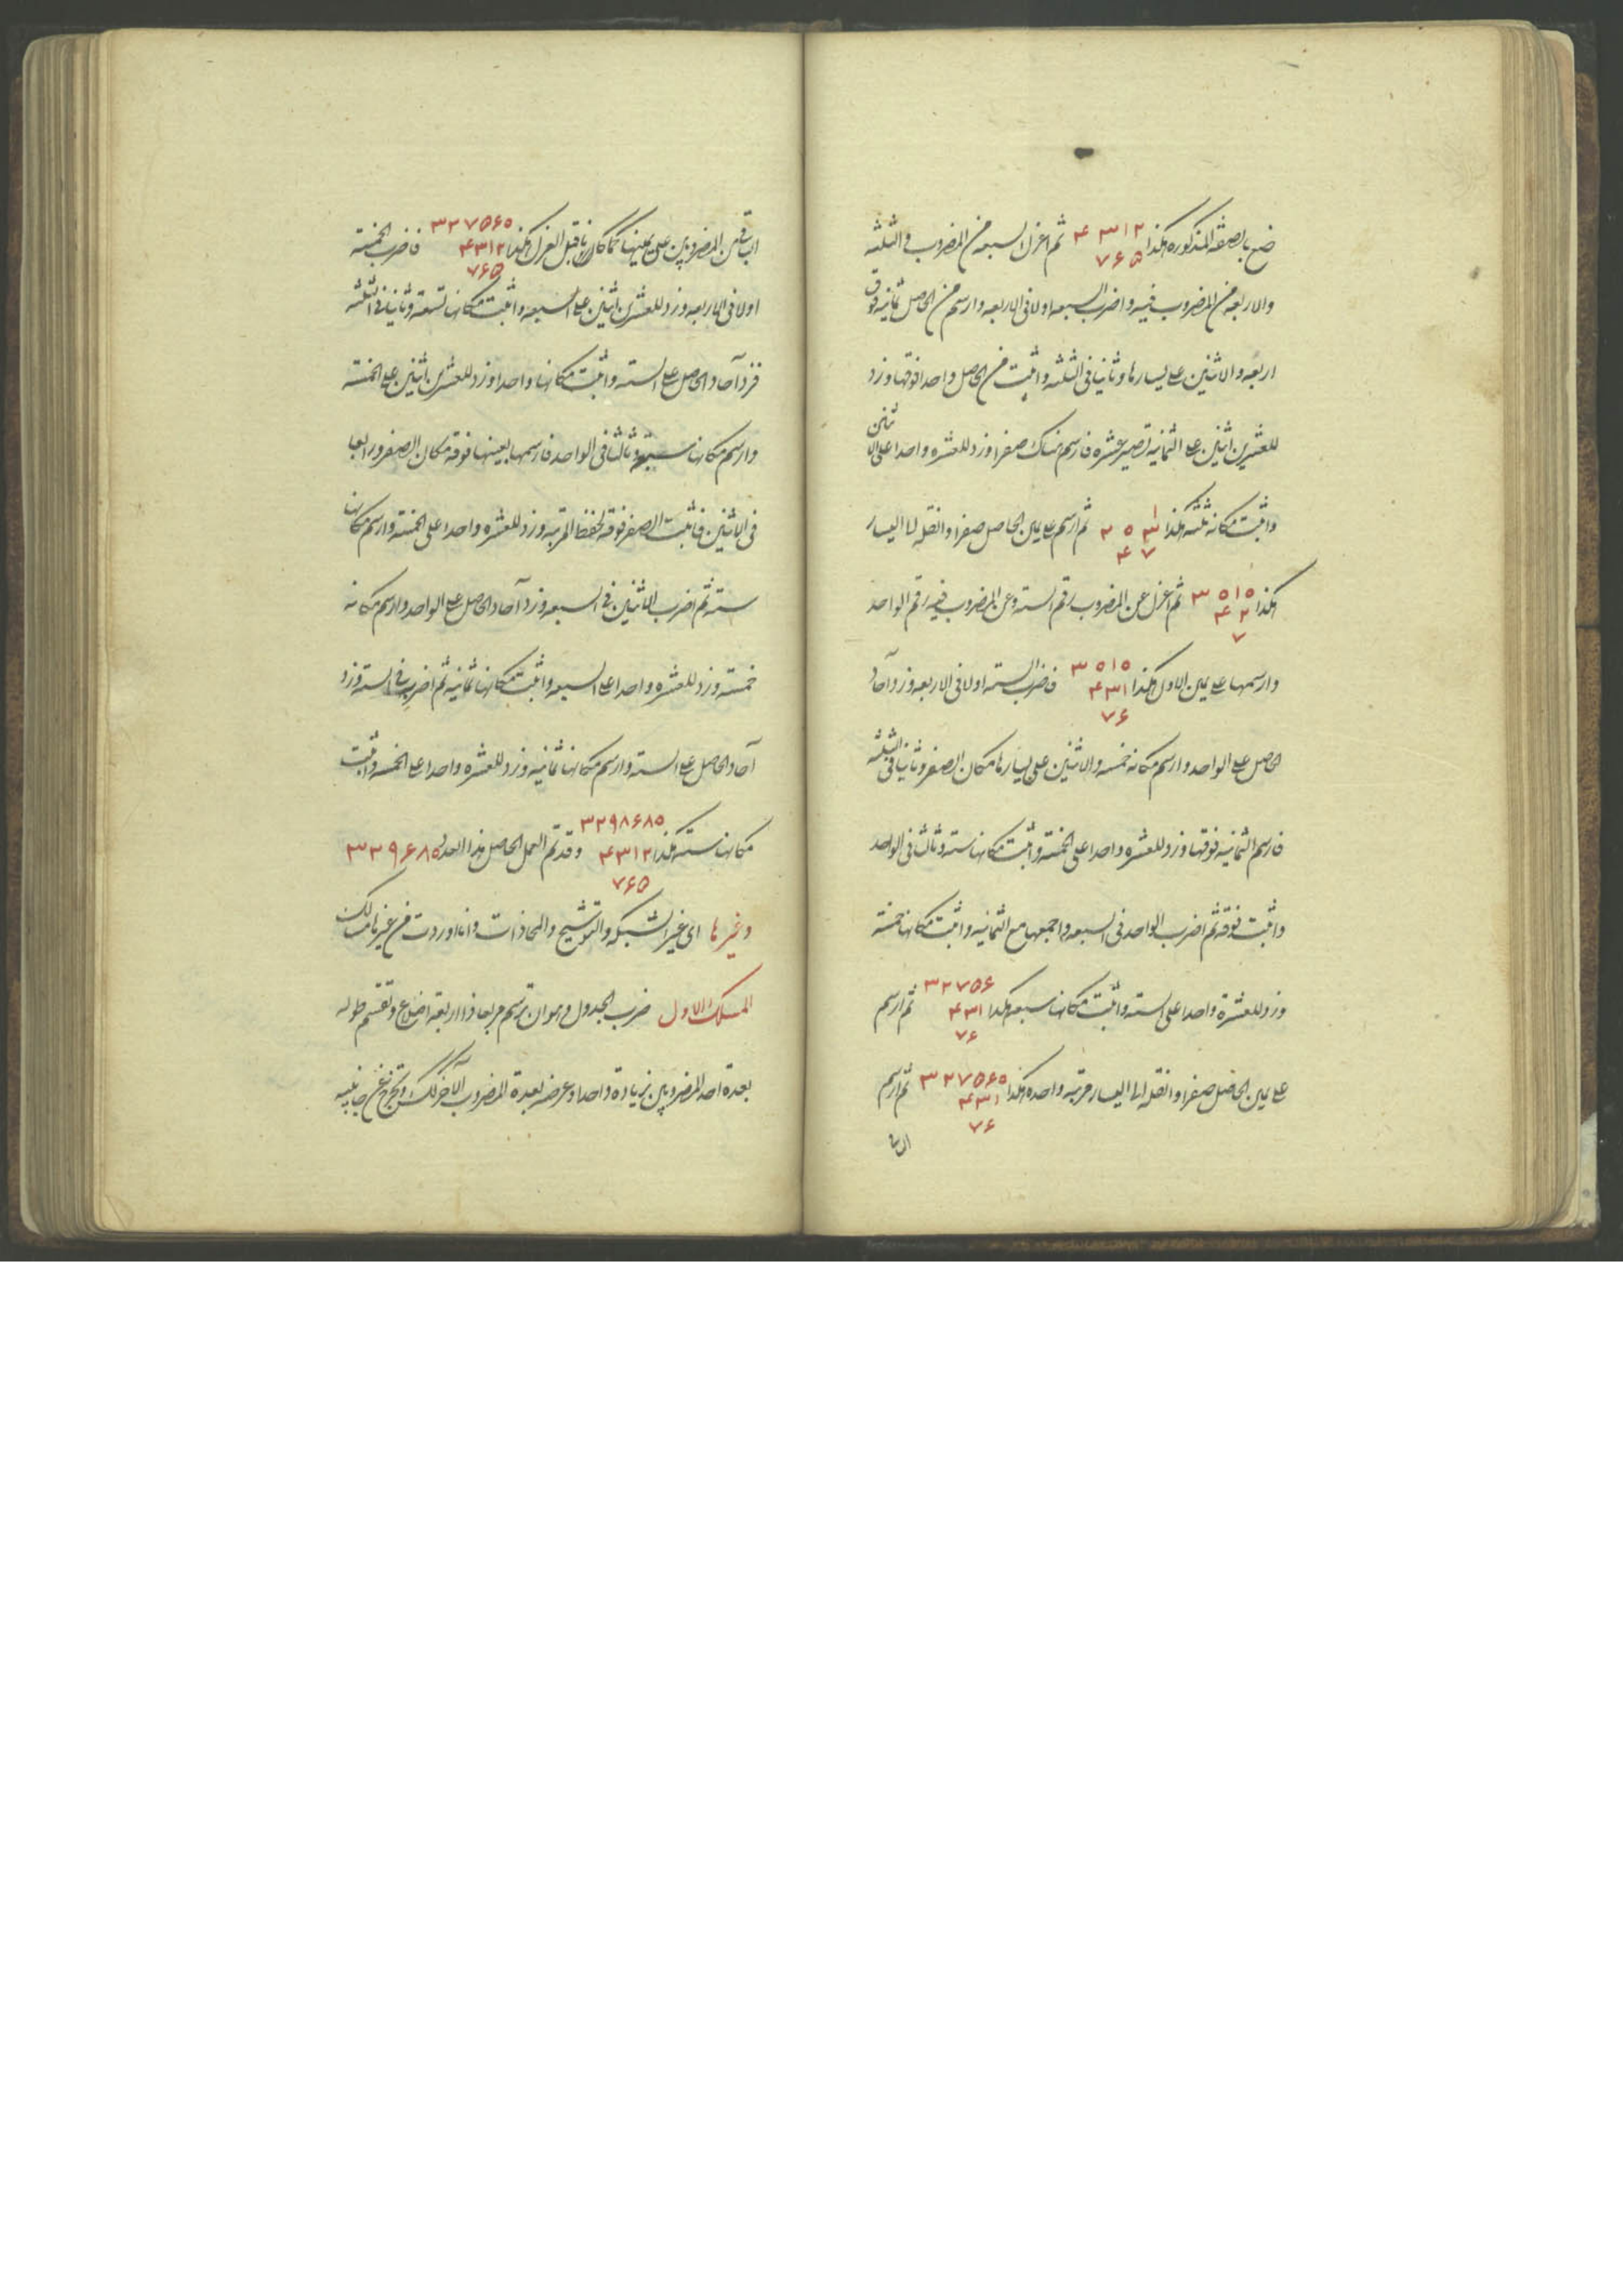 ضع بالصفة المذكوره هكذا ۴۳۱۲ ثم اعزل السبعه من المضروب والثلثه
۷۶۵
والاربعه من المضروب فيه واضرب السبعه اولا فى الاربعه وارسم من الحاصل ثمانيه فوق
اربعه والاثنين على يسارها وثانيا فى الثلثه واثبت من الحاصل واحدا فوقها وزد
للعشرين اثنين على الثمانيه تصير عشره فارسم هناك صفرا وزد للعشره واحدا على الاثنين
واثبت مكانه ثلثه هكذا ثم ارسم على يمين الحاصل صفرا وانقله الى اليسار
۴ ۷
هكذا ۳۵۱۵ ثم اعزل عن المضروب رقم السته وعن المضروب فيه رقم الواحد
۴۲
۷
وارسمها على يمين الاول هكذا ۳۵۱۵ فاضرب السته اولا فى الاربعه وزد آحاد
۴۳۱
۷۶
الحاصل على الواحد وارسم مكانه خمسه والاثنين على يسارها مكان الصفر وثانيا فى الثلثه
فارسم الثمانيه فوقها وزد للعشره واحدا على الخمسه واثبت مكانها سته وثالثا فى الواحد
واثبت فوقه ثم اضرب الواحد فى السبعه واجمعها مع الثمانيه واثبت مكانها خمسة
وزد للعشرة واحدا على السته واثبت مكانها سبعه هكذا ۳۲۷۵۶ ثم ارسم
۴۳۱
۷۶
على يمين الحاصل صفرا وانقله الى اليسار مرتبه واحده هكذا ۳۲۷۵۶۵ ثم ارسم
۴۳۱
۷۶
الباقين من المضروبين على يمينها كما كان قبل العزل هكذا ۳۲۷۵۶۵ فاضرب الخمسة
۴۳۱۲
۷۶۵
اولا فى الاربعه وزد للعشرين اثنين على السبعه واثبت مكانها تسعة وثانيا فى الثلثه
فزد آحاد الحاصل على السته واثبت مكانها واحدا وزد للعشرين اثنين على الخمسه
وارسم مكانها وثالثا فى الواحد فارسمها بعينها فوقه مكان الصفر ورابعا
فى الاثنين فاثبت الصفر فوقه لحفظ المرتبه وزد للعشره واحدا على الخمسه وارسم مكانها
سته ثم اضرب الاثنين فى السبعه وزد آحاد الحاصل على الواحد وارسم مكانه
خمسته وزد للعشره واحدا على السبعه واثبت مكانها ثمانيه ثم اضرب فى السته وزد
آحاد الحاصل على السته وارسم مكانها ثمانيه وزد للعشره واحدا على الخمسه واثبت
مكانها سته هكذا ۳۲۹۸۶۸۵ وقد تم العمل الحاصل هذا العدد ۳۲۹۶۸۵
۴۳۱۲
۷۶۵
وغيرها اى غير الشبكه والتوشيح والمحاذات وانا اوردت من غيرها مسالك
المسلك الاول ضرب الجدول وهو ان ترسم مربعا ذا اربعة اضلاع وتقسم طوله
بعدة احد المضروبين بزيادة واحد وعرضه بعدة المضروب الآخر كذلك وتخرج من جانبيه